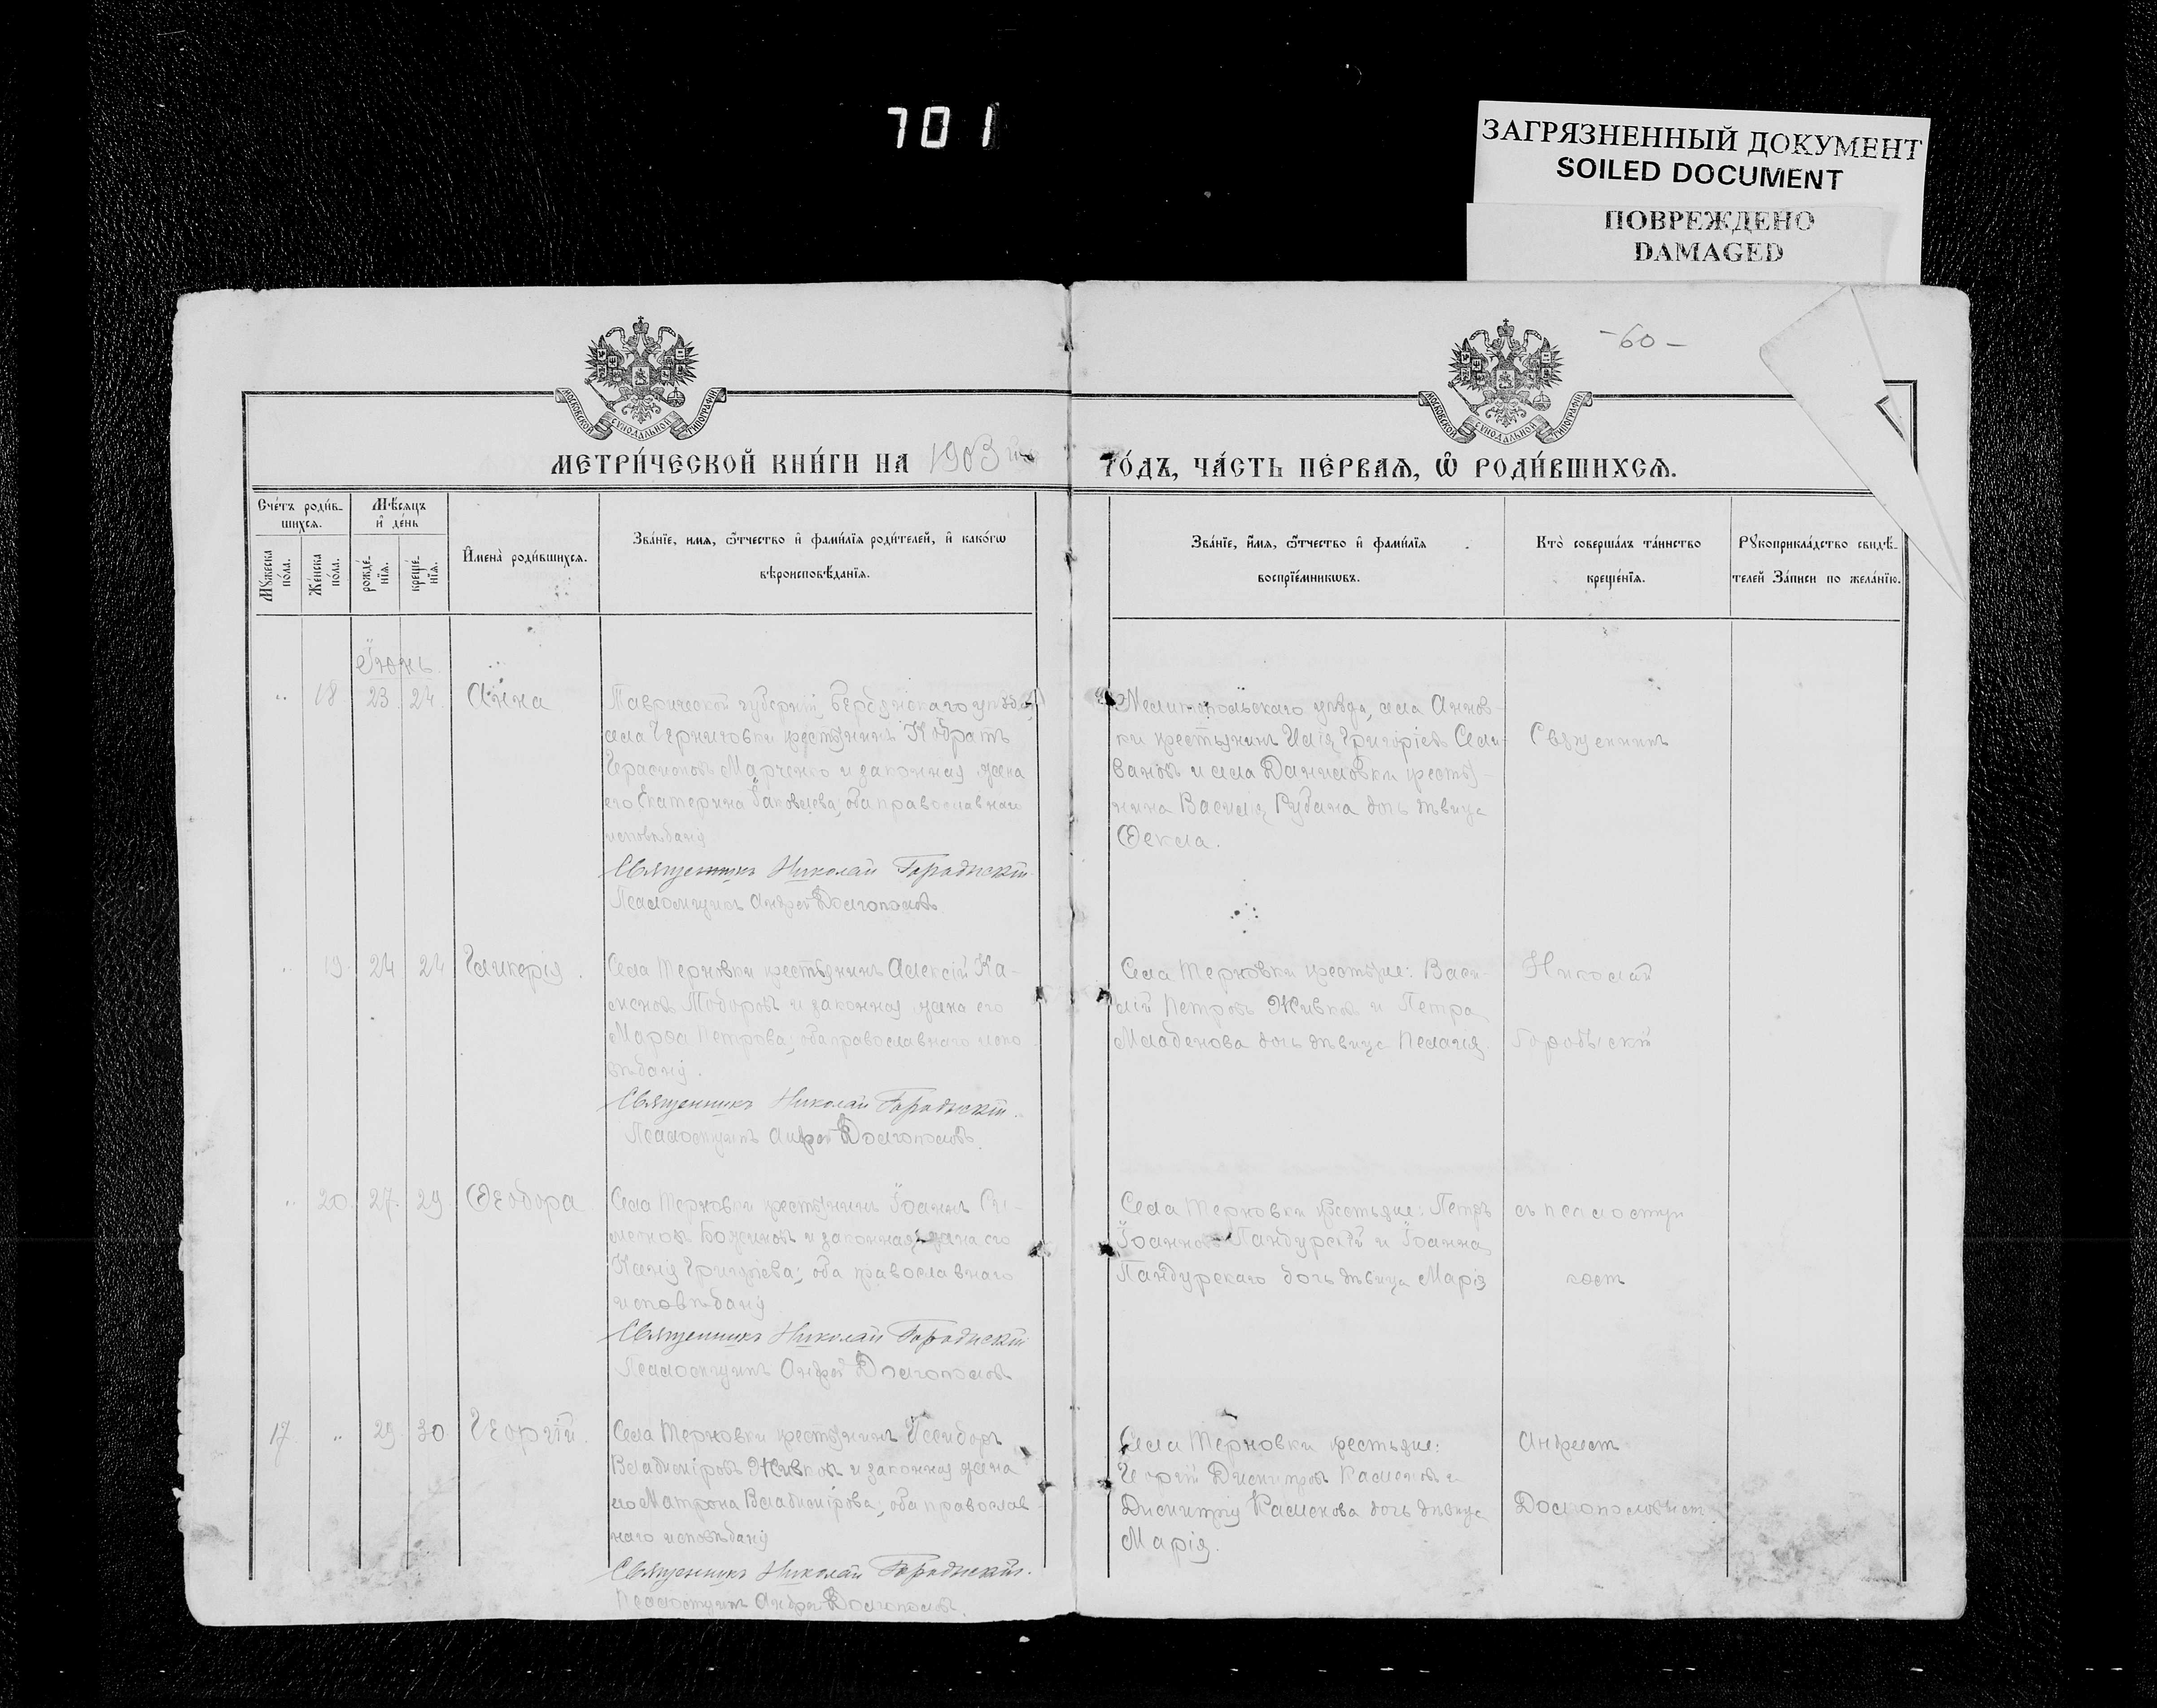 701
ЗАГРЯЗНЕННЫЙ ДОКУМЕНТ
SOILED DOCUMENT
ПОВРЕЖДЕНО
DAMAGED
-60-
МОСКОВСКОЙ СѴНОДАЛЬНОЙ ТИПОГРАФІИ
МОСКОВСКОЙ СѴНОДАЛЬНОЙ ТИПОГРАФІИ
МЕТРИ́ЧЕСКОЙ КНИ́ГИ НА 1903 й
ГО́ДЪ, ЧА́СТЬ ПЕ́РВАѦ, Ѡ҆ РОДИ́ВШИХСѦ.
Сче́тъ роди́в-
шихсѧ.
Мѣ́сѧцъ
и҆ де́нь
Мꙋжеска
по́ла.
Же́нска
по́ла.
рожде́-
нїѧ.
креще́-
нїѧ.
И҆мена̀ роди́вшихсѧ.
Зва́нїе, имѧ, ѻ҆́тчество и҆ фами́лїѧ роди́телей, и҆ како́гѡ
вѣроисповѣ́данїѧ.
Зва́нїе, и҆́мѧ, ѻ҆́тчество и҆ фами́лїѧ
воспрїе́мникѡвъ.
Кто̀ соверша́лъ та́инство
креще́нїѧ.
Рꙋкоприкла́дство свидѣ́-
телей За́писи по жела́нїю.
Іюнь.
„ 18 23 24 Анна
Таврической губерніи, Бердянскаго уѣзда,
села Черниговки крестьянинъ Кодратъ
Герасимовъ Марченко и законная жена
его Екатерина Іаковлева; оба православнаго
исповѣданія
Священникъ Николай Городыскій
Псаломщикъ Андрей Долгополовъ
Мелитопольскаго уѣзда, села Аннов-
ки крестьянинъ Илія Григоріевъ Сели-
вановъ и села Даниловки крестья-
нина Василія Рубана дочь дѣвица
Ѳекла.
Священникъ
„ 19 24 24 Гликерія.
Села Терновки крестьянинъ Алексій Ка-
леновъ Тодоровъ и законная жена его
Марѳа Петрова; оба православнаго испо
вѣданія.
Священникъ Николай Городыскій.
Псаломщикъ Андрей Долгополовъ.
Села Терновки крестьяне: Васи-
лій Петровъ Живковъ и Петра
Младенова дочь дѣвица Пелагія.
Николай
Городыскій
„ 20. 27. 29. Ѳеодора.
Села Терновки крестьянинъ Іоаннъ Си-
меоновъ Божиновъ и законная жена его
Григоріева; оба православнаго
исповѣданія
Священникъ Николай Городыскій
Псаломщикъ Андрей Долгополовъ
Села Терновки крестьяне: Петръ
Іоанновъ Пандурскій и Іоанна
Пандурскаго дочь дѣвица Марія
съ псаломщи
комъ
17. „ 29. 30 Георгій.
Села Терновки крестьянинъ Исидоръ
Владиміровъ Живковъ и законная жена
его Матрона Владимірова; оба православ-
наго исповѣданія
Священникъ Николай Городыскій.
Псаломщикъ Андрей Долгополовъ.
Села Терновки крестьяне:
Георгій Димитровъ Каменовъ и
Димитрія Каменова дочь дѣвица
Марія.
Андреемъ
Долгополовымъ.